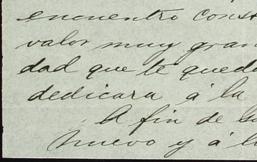 encuentro const
valor muy gran
dad que te qued
dedicara á la
A fin de
nuevo y á l